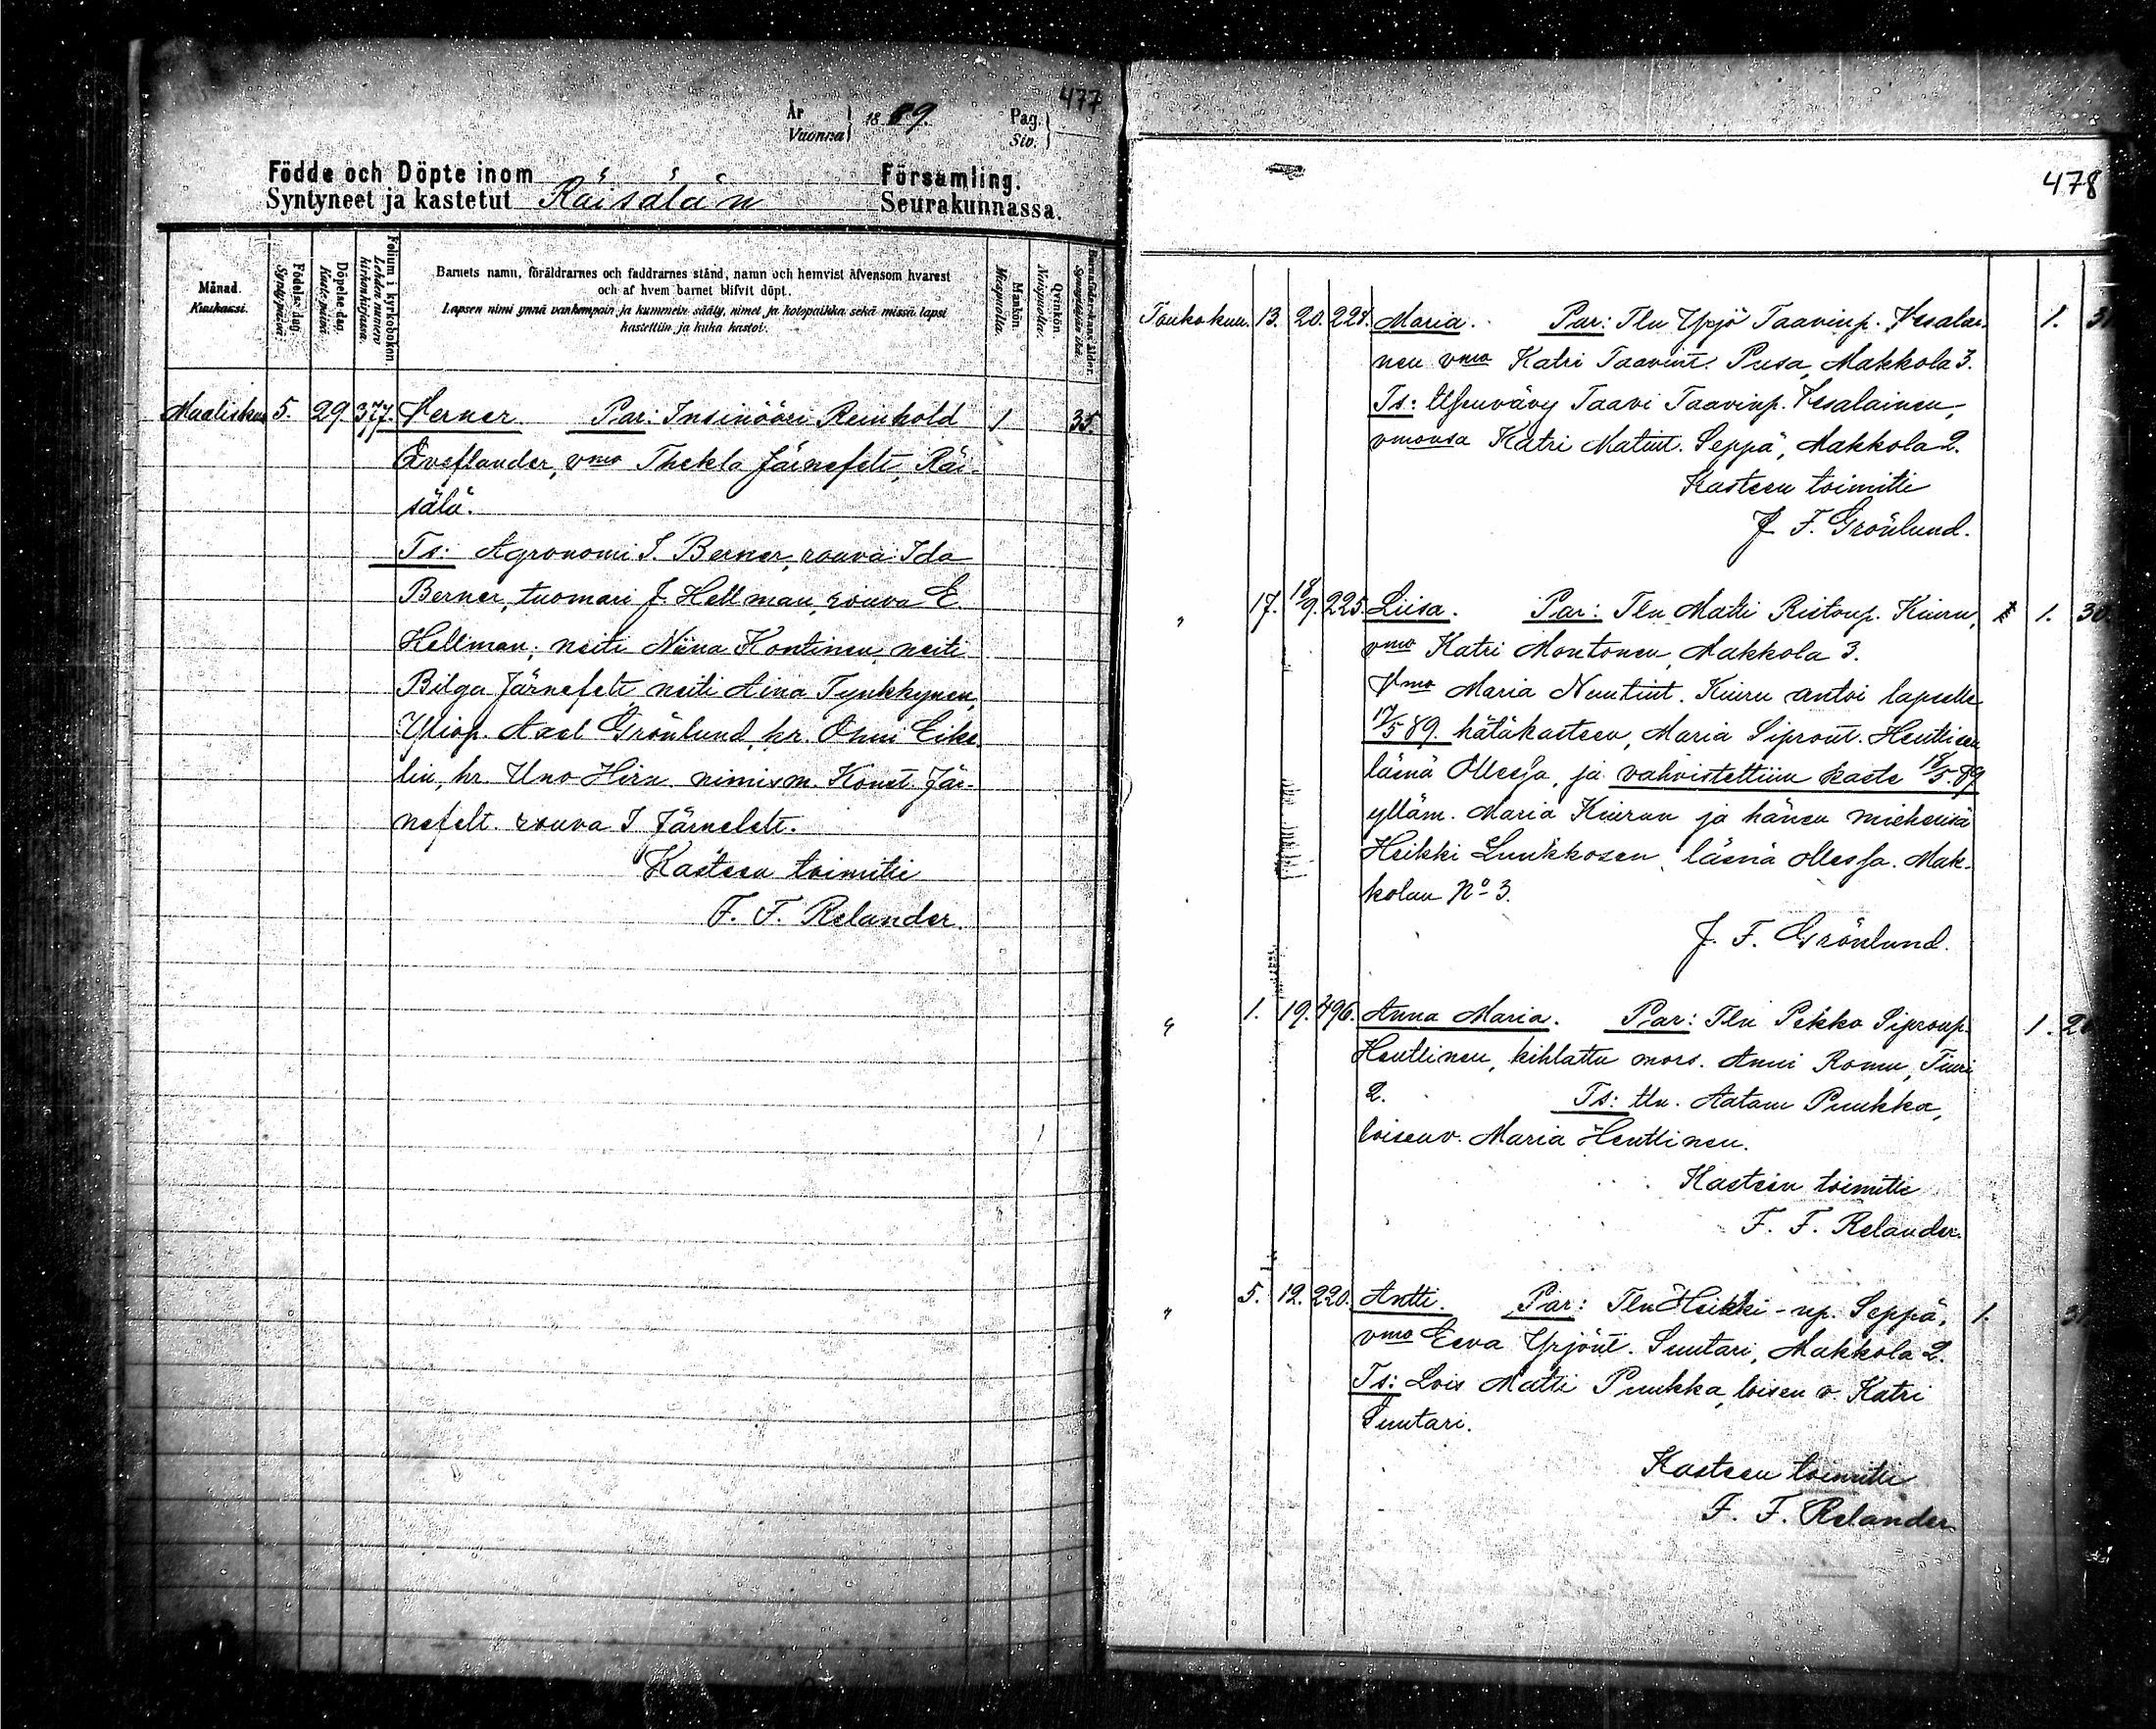 477
År
Vuonna
1889.
Pag.
Siv.
Födde och Döpte inom Församling.
Syntyneet ja kastetut Räisälän Seurakunnassa.
Månad.
Kuukausi.
Födelse dag.
Syntypäivä.
Döpelse dag.
Kaste päivä.
Folium i kyrkoboken.
Lehden numero kirkonkirjassa.
Barnets namn, föräldrarnes och faddrarnes stånd, namn och hemvist äfvensom hvarest
och af hvem barnet blifvit döpt.
Lapsen nimi ynnä vanhempain ja kummein sääty, nimet ja kotopaikka sekä missä lapsi
kastettiin ja kuka kastoi.
Mankön.
Miespuolia.
Qvinkön.
Naispuolia.
Maaliskuu 5. 29. 377. Verner. Par: Insinööri Reinhold 1 35.
vmo Thekla Järnefelt, Räi-
sälä.
Ts: Agronomi I. Berner, rouva Ida
Berner, tuomari J. Hellman, rouva E
Hellman; neiti Niina Kontinen, neiti
Bilga Järnefelt neiti Aina Tynkkynen,
Yliop. Axel Grönlund, hr. Onni Eike
lin, hr. Uno Hirn nimism. Konst. Jär-
nefelt. rouva I Järnelelt.
Kasteen toimitti
F. F. Relander.
478
Toukokuu. 13. 20. 224. Maria. Par: Tln Yrjö Taavinp. Vesalai- 1.
nen vmo Katri Taavint. Pusa, Makkola 3.
Ts: Taavi Taavinp. Vesalainen,
vmonsa Katri Matint. Seppä, Makkola 2.
Kasteen toimitti
J. F. Grönlund.
" 17. 18/19. 225. Liisa. Par: Tln Matti Ristonp. Kiuru, 1. 30.
vmo Katri Montonen, Makkola 3.
Vmo Maria Nuutint. Kiuru antoi lapselle
17/5 89. hätäkasteen, Maria Sipront. Henttisen
läsnä Ollessa, ja vahvistettiin kaste 18/5. 89
ylläm. Maria Kiurun ja hänen miehensä
Heikki Luukkosen läsnä ollessa. Mak-
kolan No 3.
J. F. Grönlund.
" 1. 19. 496. Anna Maria. Par: Tln Pekka Sipronp. 1.
Henttinen, kihlattu mors. Anni Romu, Tiuri
2. Ts: tln. Aatam Puukka,
loisenv. Maria Henttinen.
Kasteen toimitti
F. F. Relander.
" 5. 12. 220. Antti. Par: Tln Heikki - np. Seppä, 1.
vmo Eeva Yrjönt. Suutari, Makkola 2.
Ts: Lois Matti Puukka, loisen v. Katri
Suutari.
Kasteen toimitti
F. F. Relander.